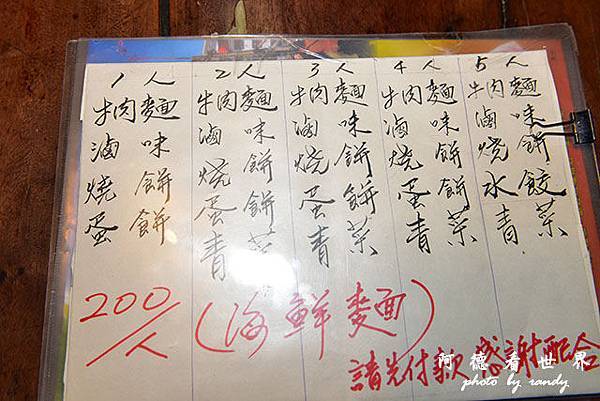 1人
牛肉麵
滷味
燒餅
蛋餅
2人
牛肉麵
滷味
燒餅
蛋餅
青菜
3人
牛肉麵
滷味
燒餅
蛋餅
青菜
4人
牛肉麵
滷味
燒餅
蛋餅
青菜
5人
牛肉麵
滷味
燒餅
水餃
青菜
200/人 (海鮮麵)
請先付款 感謝配合
阿德看世界
photo by randy